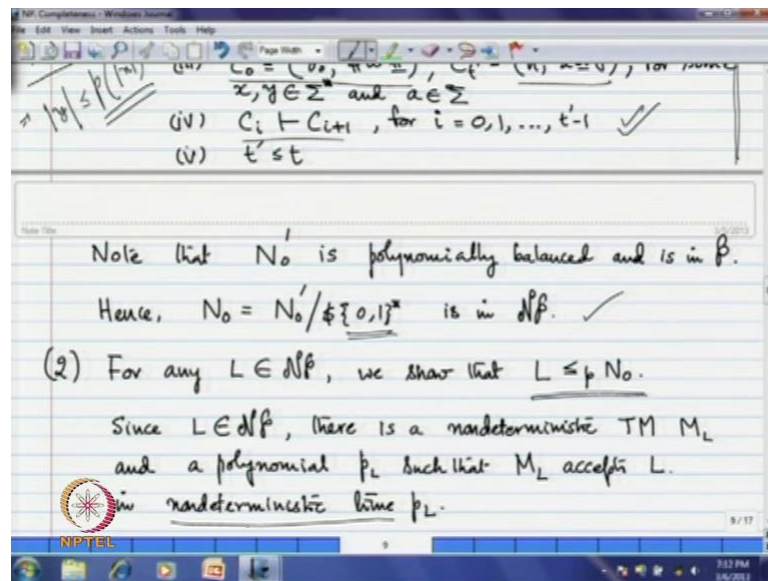 NP. Completeness - Windows Journal
File Edit View Insert Actions Tools Help
Page Width
x, y ∈ Σ* and a ∈ Σ
⇒ |y| ≤ p(|x|)
(iv) Ci ⊢ Ci+1, for i = 0, 1, ..., t'-1 ✓
(v) t' ≤ t
Note Title
3/5/2013
Note that N₀' is polynomially balanced and is in P.
Hence, N₀ = N₀'/${0,1}* is in NP. ✓
(2) For any L ∈ NP, we show that L ≤p N₀.
Since L ∈ NP, there is a nondeterministic TM M_L
and a polynomial p_L such that M_L accepts L.
in nondeterministic time p_L.
9/17
NPTEL
9
7:12 PM
3/6/2013